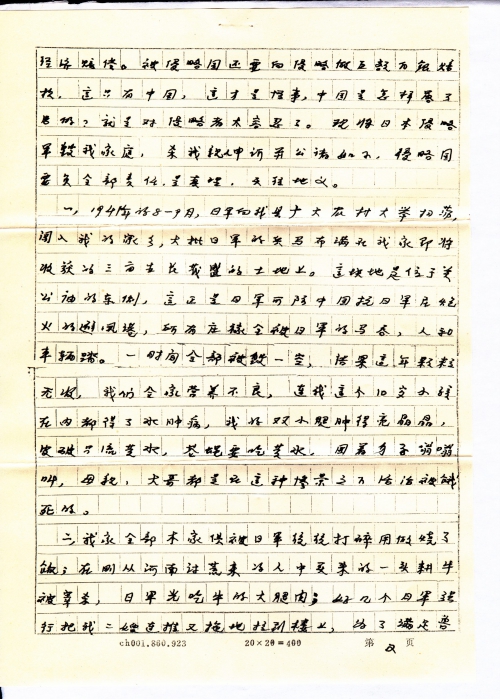 经济赔偿。被侵略国还要向侵略做巨款
这只有中国，这才是怪事，中国是怎样
就是对侵略者太容忍了。现将日本侵略
军毁我家庭，杀我亲人申诉并公诸如下，侵略国
要负全部责任，是真理，天经地义。
一，1941年的8-9月，日军向我县广大农村大举扫荡，
闯入我的家乡，大批日军的兵马布满在我家即将
收获的三亩 茂盛的土地上。这块地是位于
公油的东侧，这正是日军可防中国抗日军
火的避风港，所有庄稼全被日军的马吞，人和
车辆踏。一时间全部被毁一空，结果这年颗粒
无收，我们全家营养不良，连我这个10岁小孩
在内都得了水肿病，我的双小腿肿得亮晶晶，
皮破只流黄水，苍蝇要吃黄水，围着身子嗡嗡
叫，母亲，大哥都是在这种惨景之下活活被饿
死的。
二，我家全部木家俱被日军统统打碎用做烧了
饭；在刚从河南逃荒来的人中买来的一头耕牛
被宰杀，日军光吃牛的大腿肉；好几个日军强
行把我二婶连推又拖地拉到楼上，为了满足兽
ch001.860.923 20×20=400 第 2 页